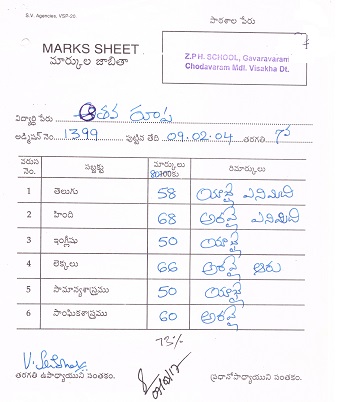 S.V. Agencies, VSP-20.
పాఠశాల పేరు
MARKS SHEET
మార్కుల జాబితా
Z.P.H. SCHOOL, Gavaravaram
Chodavaram Mdl. Visakha Dt.
విద్యార్థి పేరు రూప
అడ్మిషన్ నెం. 1399 పుట్టిన తేది 09.02.04 తరగతి
వరుస నెం. సబ్జక్టు మార్కులు 100కు రిమార్కులు
1 తెలుగు 58 యాభై ఎనిమిది
2 హింది 68 అరవై ఎనిమిది
3 ఇంగ్లీషు 50 యాభై
4 లెక్కలు 66 అరవై ఆరు
5 సామాన్యశాస్త్రము 50 యాభై
6 సాంఘికశాస్త్రము 60 అరవై
73%
తరగతి ఉపాధ్యాయుని సంతకం. ప్రధానోపాధ్యాయుని సంతకం.